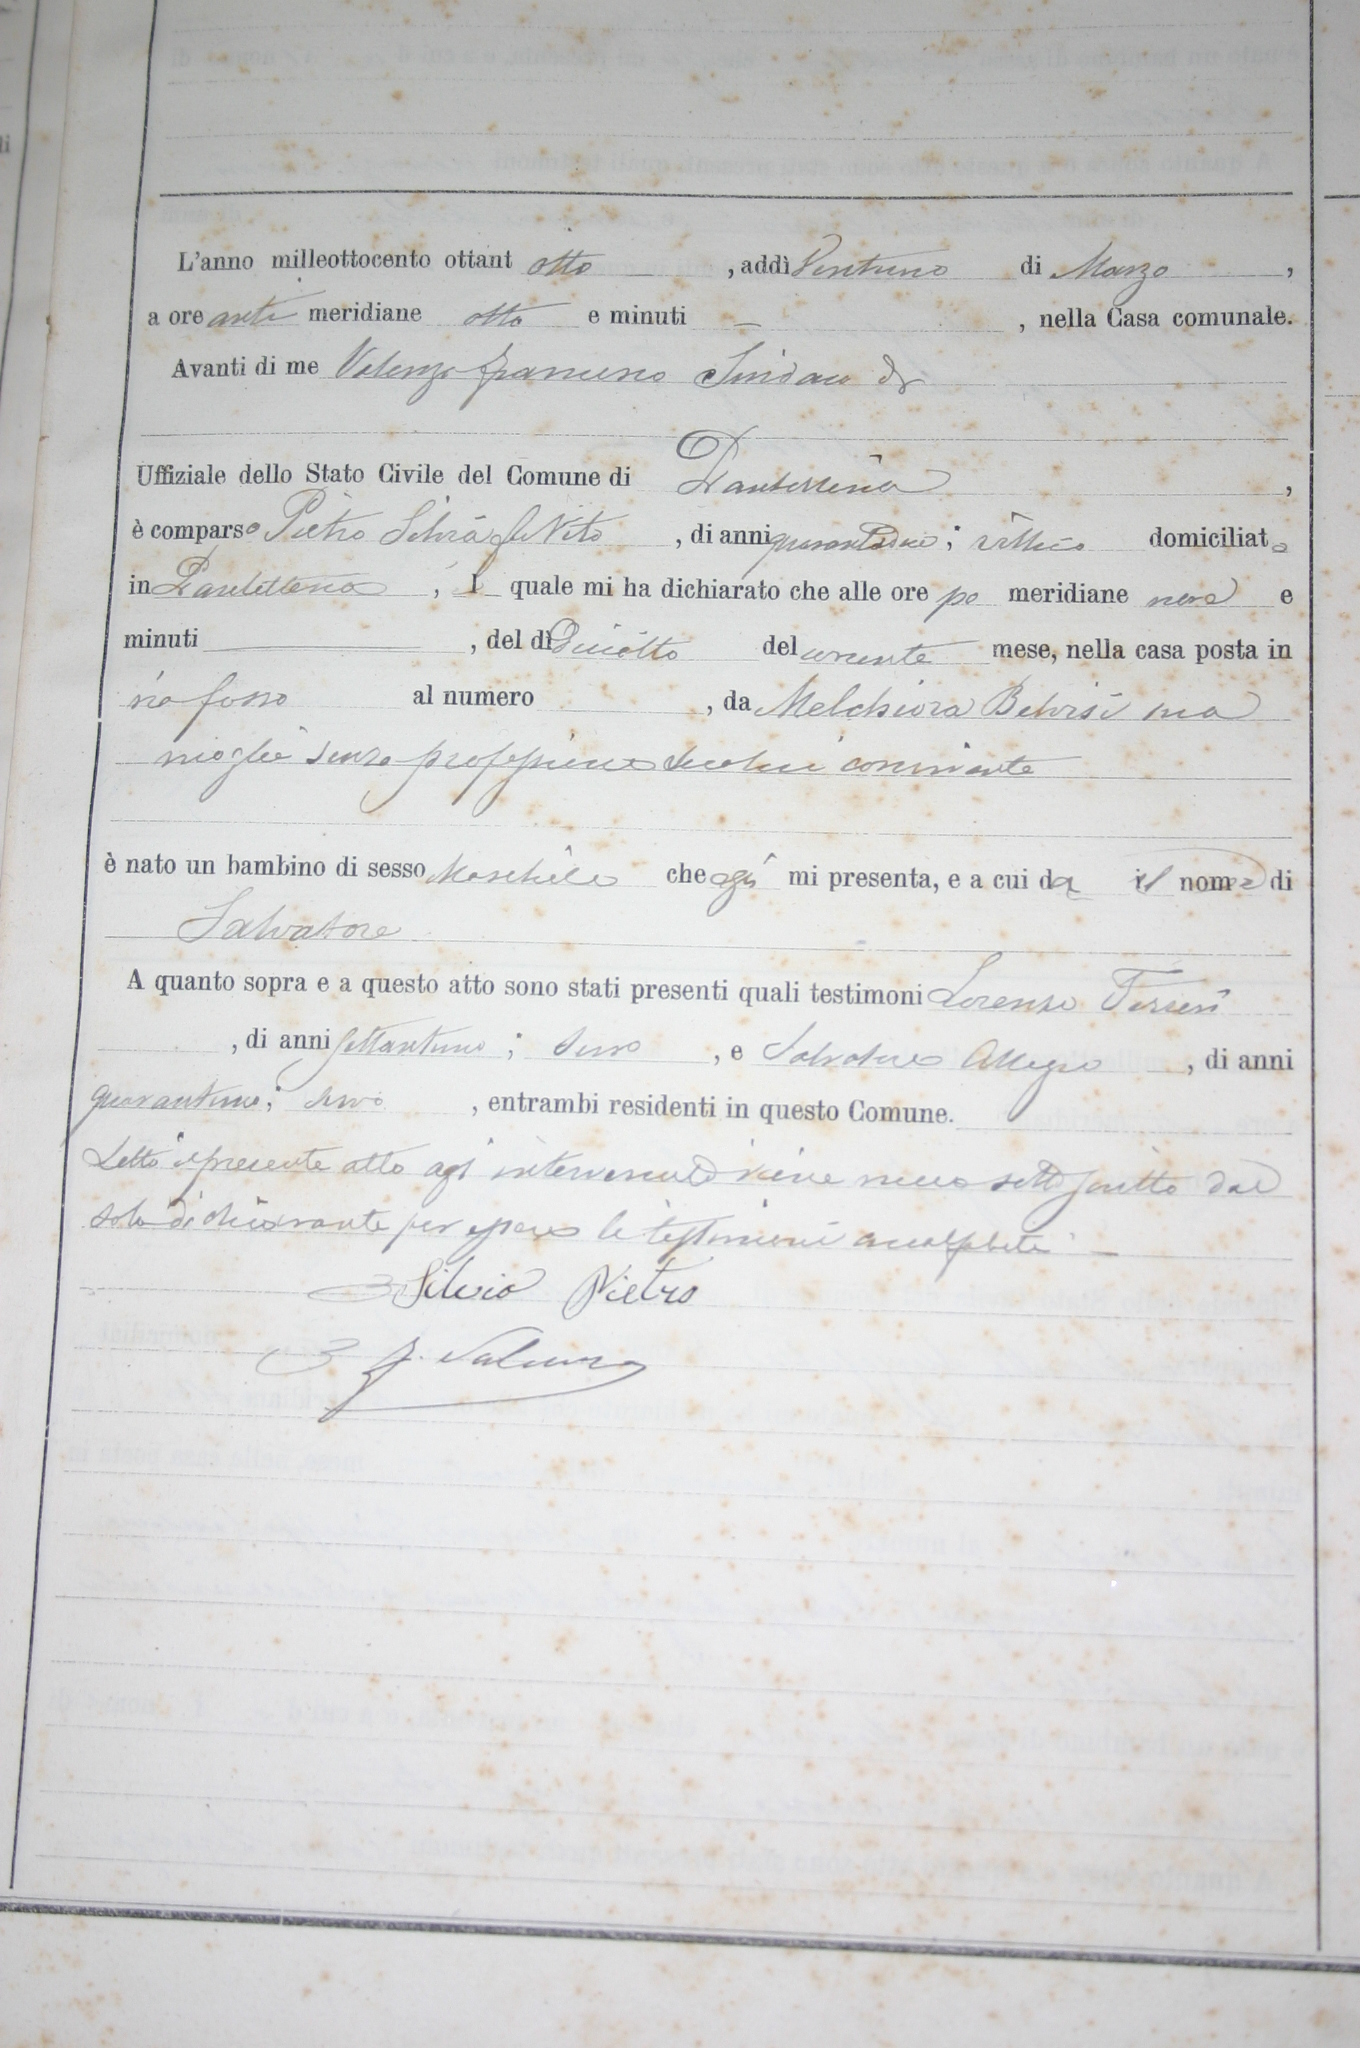 L'anno milleottocento ottant otto , addì Ventuno di Marzo ,
a ore anti meridiane otto e minuti — , nella Casa comunale.
Avanti di me Valenza Francesco Sindaco di
Uffiziale dello Stato Civile del Comune di Pantelleria ,
è comparso Pietro Silvia fu Vito , di anni quarantadue ; villico domiciliato
in Pantelleria , il quale mi ha dichiarato che alle ore po meridiane nove e
minuti — , del dì Diciotto del corrente mese, nella casa posta in
via fosso al numero , da Melchiora Belvisi sua
moglie senza professione seco lui convivente
è nato un bambino di sesso Maschile che egli mi presenta, e a cui da il nome di
Salvatore
A quanto sopra e a questo atto sono stati presenti quali testimoni Lorenzo Ferreri
, di anni settantuno ; servo , e Salvatore Allegro , di anni
quarantuno ; servo , entrambi residenti in questo Comune.
Letto il presente atto agl' intervenuti viene meco sottoscritto dal
solo dichiarante per essere li testimoni analfabeti —
Silvio Pietro
F. Valenza